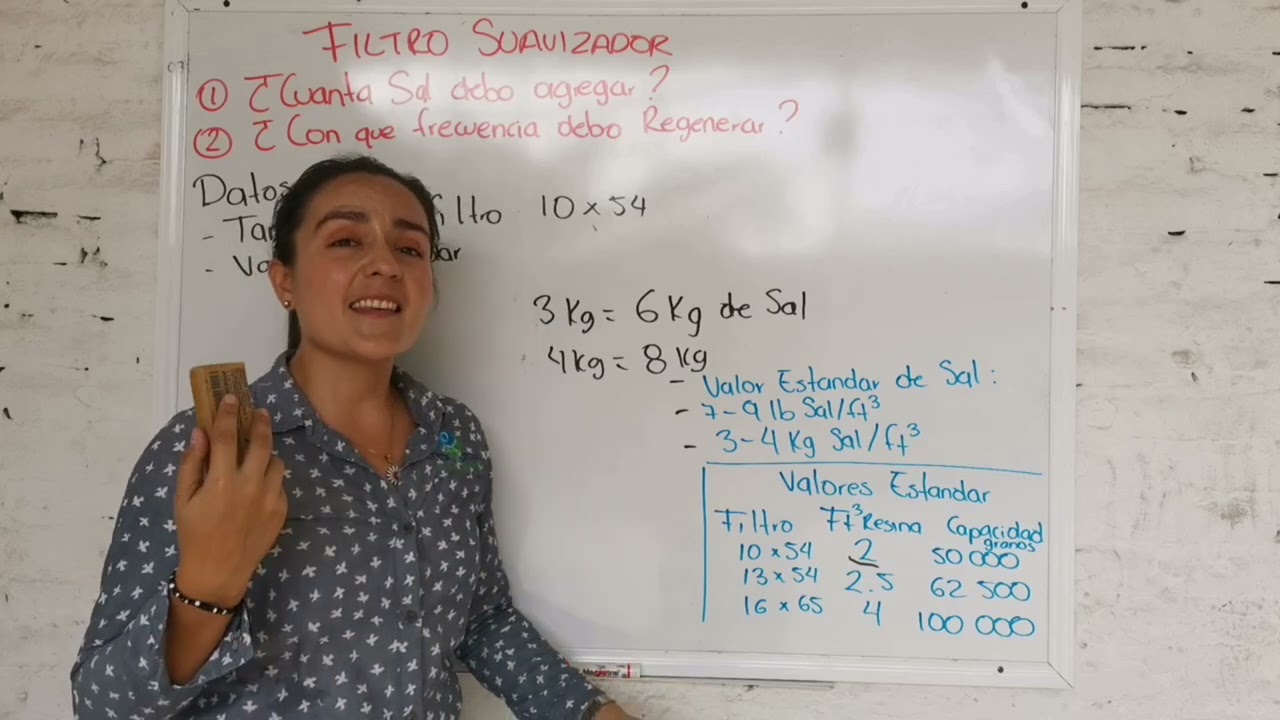 FILTRO SUAVIZADOR
① ¿Cuanta Sal debo agregar?
② ¿Con que frecuencia debo Regenerar?
Datos
10 x 54
3 Kg = 6 Kg de Sal
4 kg = 8 kg
- Valor Estandar de Sal:
- 7-9 lb Sal/ft³
- 3-4 Kg Sal/ft³
Valores Estandar
Filtro Ft³ Resina Capacidad granos
10 x 54 2 50 000
13 x 54 2.5 62 500
16 x 65 4 100 000